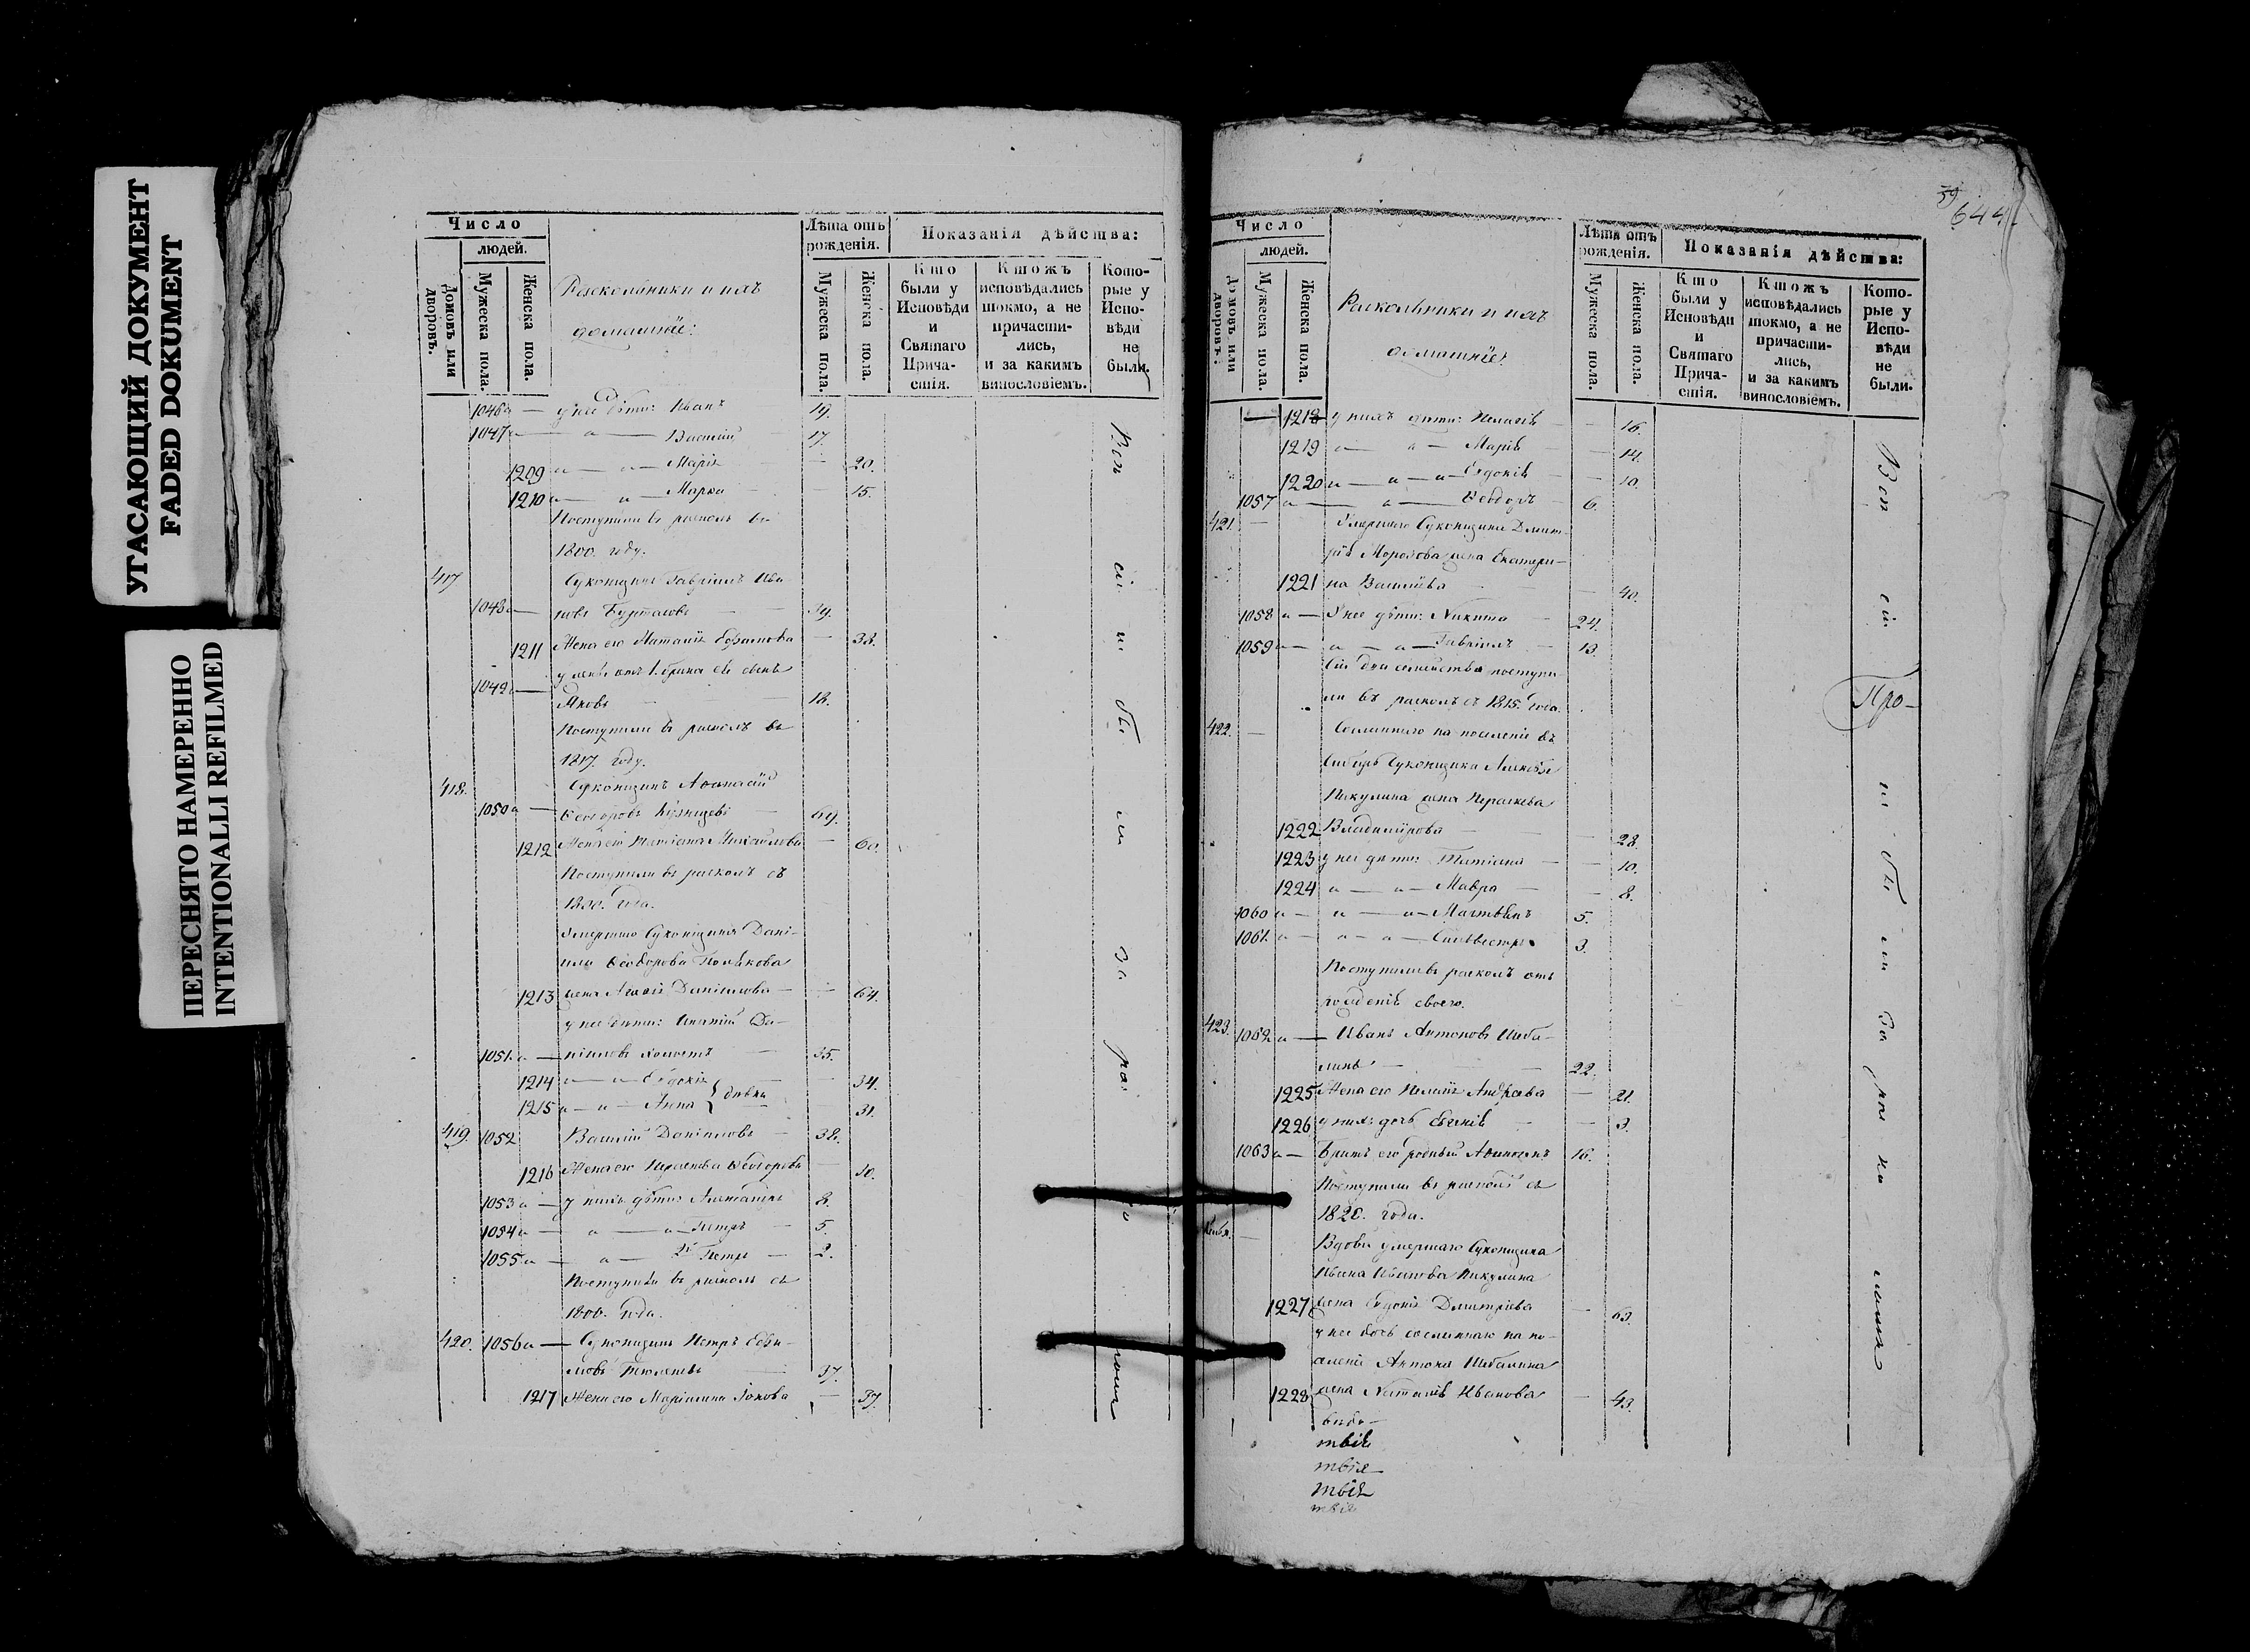 УГАСАЮЩИЙ ДОКУМЕНТ
FADED DOKUMENT
ПЕРЕСНЯТО НАМЕРЕННО
INTENTIONALLI REFILMED
Число
людей.
Домовъ или дворовъ.
Мужеска пола.
Женска пола.
Раскольники и ихъ
домашніе:
Лѣта отъ рожденія.
Мужеска пола.
Женска пола.
Показанія дѣйства:
Кто были у Исповѣди и Святаго Прича-стія.
Ктожъ исповѣдались токмо, а не причасти-лись, и за какимъ винословіемъ.
Кото-рые у Испо-вѣди не были.
1046 у нее дѣти: Иванъ 19.
1047 Василій 17.
1209 Марія 20.
1210 Марѳа 15.
Поступили въ расколъ въ
1800. году.
417 Суконщикъ Гавріилъ Ива-
1048 новъ 39.
1211 Жена его Наталія 38.
1049 Яковъ 18.
Поступили въ расколъ въ
1817. году.
418. Суконщикъ Аѳанасій
1050 Ѳеодоровъ Кузнецовъ 69.
1212 Жена его Татіана Михайлова 60.
Поступили въ расколъ съ
года.
Умершаго Суконщика Дані-
ила Ѳеодорова Полякова
1213 жена Данилова 64.
у нее дѣти: Игнатій Да-
1051 ниловъ холостъ 35.
1214 Евдокія 34.
1215 Анна дѣвки 31.
419. 1052 Василій Даниловъ 38.
1216 Жена его Параскева Ѳеодорова 40.
1053 у нихъ дѣти: 8.
1054 Петръ 5.
1055 2й Петръ 2.
Поступили въ расколъ съ
1800. года.
420. 1056 Суконщикъ Петръ Ефи-
мовъ 37.
1217 Жена его Маріамна 37.
Вси сіи не бы ли за рас
39
644
Число
людей.
Домовъ или дворовъ.
Мужеска пола.
Женска пола.
Раскольники и ихъ
домашніе:
Лѣта отъ рожденія.
Мужеска пола.
Женска пола.
Показанія дѣйства:
Кто были у Исповѣди и Святаго Прича-стія.
Ктожъ исповѣдались токмо, а не причасти-лись, и за какимъ винословіемъ.
Кото-рые у Испо-вѣди не были.
1218 у нихъ дѣти: Пелагія 16.
1219 Марія 14.
1220 Евдокія 10.
1057 Ѳеодоръ 6.
421. Умершаго Суконщика Дмит-
рія Морозова жена Екатери-
1221 на Васильева 40.
1058 У нее дѣти: Никита 24.
1059 Гавріилъ 13.
Сіи два семейства поступи
ли въ расколъ съ 1815. года.
422. Сосланнаго на поселеніе въ
Сибирь Суконщика Алексѣя
Никулина жена Параскева
1222 Владимірова 28.
1223 у нее дѣти: Татіана 10.
1224 Мавра 8.
1060 Матвѣй 5.
1061. Сильвестръ 3.
Поступили въ расколъ отъ
рожденія своего.
423. 1062 Иванъ Антоновъ Шеба-
линъ 22.
1225 Жена его Андреева 21.
1226 у нихъ дочь Евгенія 3.
1063 Братъ его родный 16.
Поступили въ расколъ съ
1820. года.
Вдова умершаго Суконщика
Ивана Иванова Никулина
1227 жена Евдокія Дмитріева 63.
у нее дочь сосланнаго на по-
селеніе Антона Шебалина
1228 жена Наталія Иванова 43.
Вси сіи не бы ли за рас ко
Про-
твія
твія
твія
твія